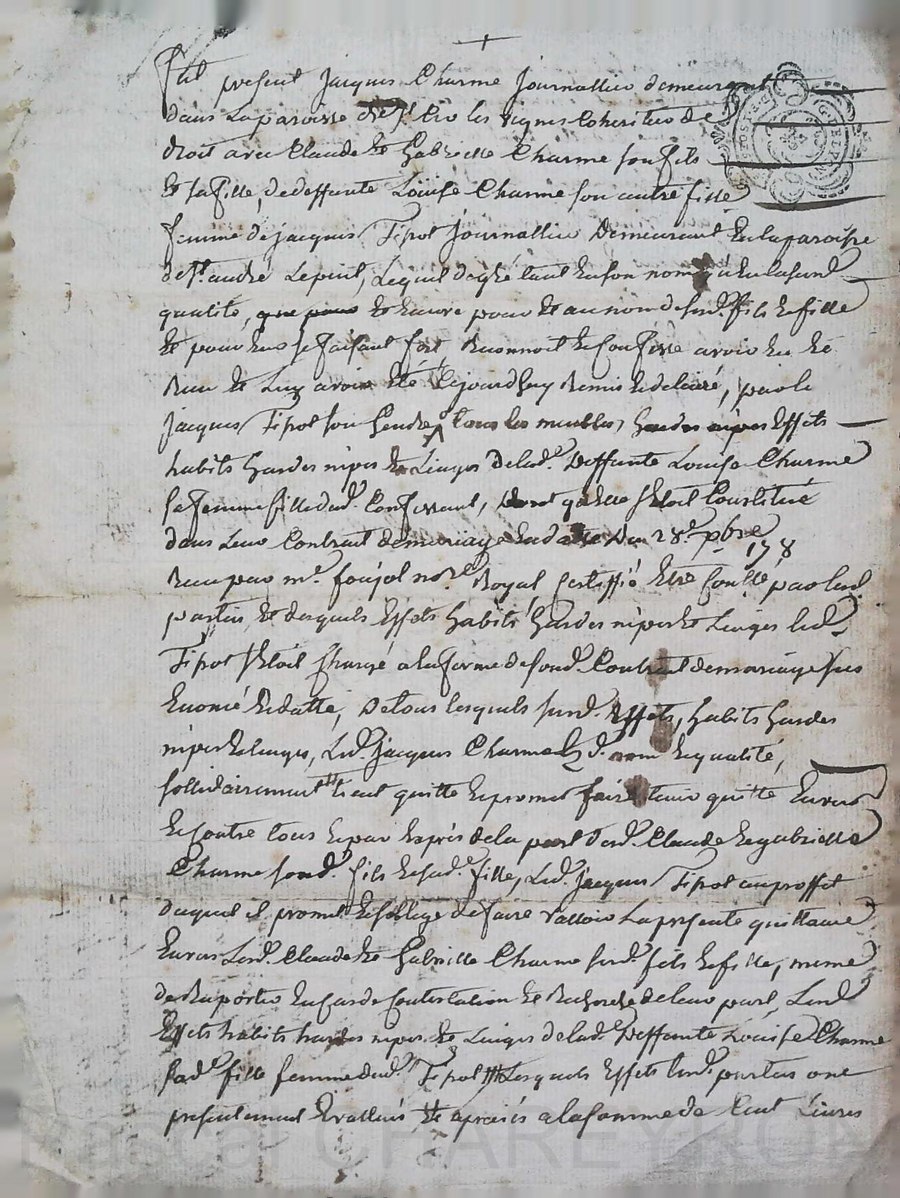 fut present Jacques Charme Journallier demeurant
dans La paroisse de St Cir les vignes Coheritier de
droit avec Claude et Gabrielle Charme son fils
et sa fille, de deffunte Louise Charme son autre fille
femme de jacques Tipot Journallier Demeurant En la paroisse
de St andré Le puit, Lequel de gré tant En son nom qu'a En la susd.
qualité, et Encore pour et au nom desd. fils et fille
et pour Eux se faisant fort, Reconnoit et Confesse avoir Eu et
Receu et Luy avoir Eté Cejourdhuy Remis et delivré, par le
jacques Tipot son Gendre tous les meubles, Effets
habits hardes nipes et Linges de lad. Deffunte Louise Charme
sa femme fille dud. Confessant, qu'elle s'Etoit Constitué
dans Leur Contrat de mariage En datte Du 28e 9bre
178
Receu par me. foujol nore. Royal Certiffié Etre Conllé, par lesd.
parties, et desquels Effets habits hardes nipes et Linges led.
Tipot s'Etoit Chargé a la forme de sond. Contrat de mariage sus
Enoncé et datté, De tous lesquels susd. Effets, habits hardes
nipes et linges, Led. jacques Charme Esd. nom et qualité,
sollidairement tient quitte et promet faire tenir quitte Envers
et Contre tous et par Exprès de la part desd. Claude et gabrielle
Charme sond. fils et sad. fille, Led. jacques Tipot au proffit
duquel il promet et s'oblige de faire valloir La presente quittance
Envers Lesd. Claude et Gabrielle Charme sesd. fils et fille, meme
de Raporter En Cas de Contestation et Recherche de leur part, Lesd.
Effets habits hardes nipes et Linges de lad. Deffunte Louise Charme
sad. fille femme dud. Tipot Lesquels Effets lesd. parties ont
presentement Evallués et apreciés a la somme de Cent Livres
Pascal CHAREYRON